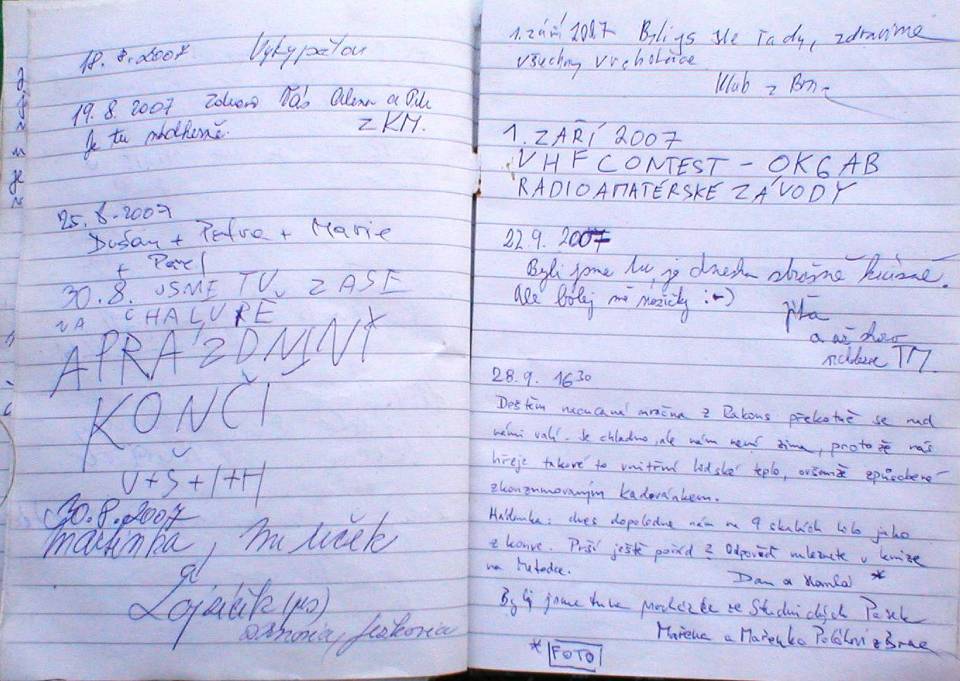 18. 8. 2007
19. 8. 2007 Zdraví Vás Alena a
Je tu nádherně. z KM.
25. 8. 2007
Dušan + Petra + Marie
+ Pavel
30.8. JSME TU ZASE
NA CHALUPĚ
A PRÁZDNINY
KONČÍ
V+Š+I+H
30.8.2007
Martinka, Miláček
a
Lojzíčík (pes)
1. září 2007 Byli jsme tady, zdravíme
všechny vrcholaře
Klub z Brna
1. ZÁŘÍ 2007
VHF CONTEST - OK6AB
RADIOAMATÉRSKÉ ZÁVODY
22.9. 2007
Byli jsme tu, je dneska strašně krásně.
Ale bolej mě nožičky :-)
Jíťa
a
TM.
28.9. 16³⁰
Deštěm nacucaná mračna z Rakous překotně se nad
námi valí. Je chladno, ale nám není zima, protože nás
hřeje takové to vnitřní lidské teplo, ovšemže způsobené
zkonzumovaným
Hádanka: dnes dopoledne nám na 9 skalách lilo jako
z konve. Prší ještě pořád? Odpověď naleznete v knize
na
Dan a *
Byli jsme tu na procházce ze Studničných Pasek
Mařena a Mařenka Polákovi z Brna
* FOTO